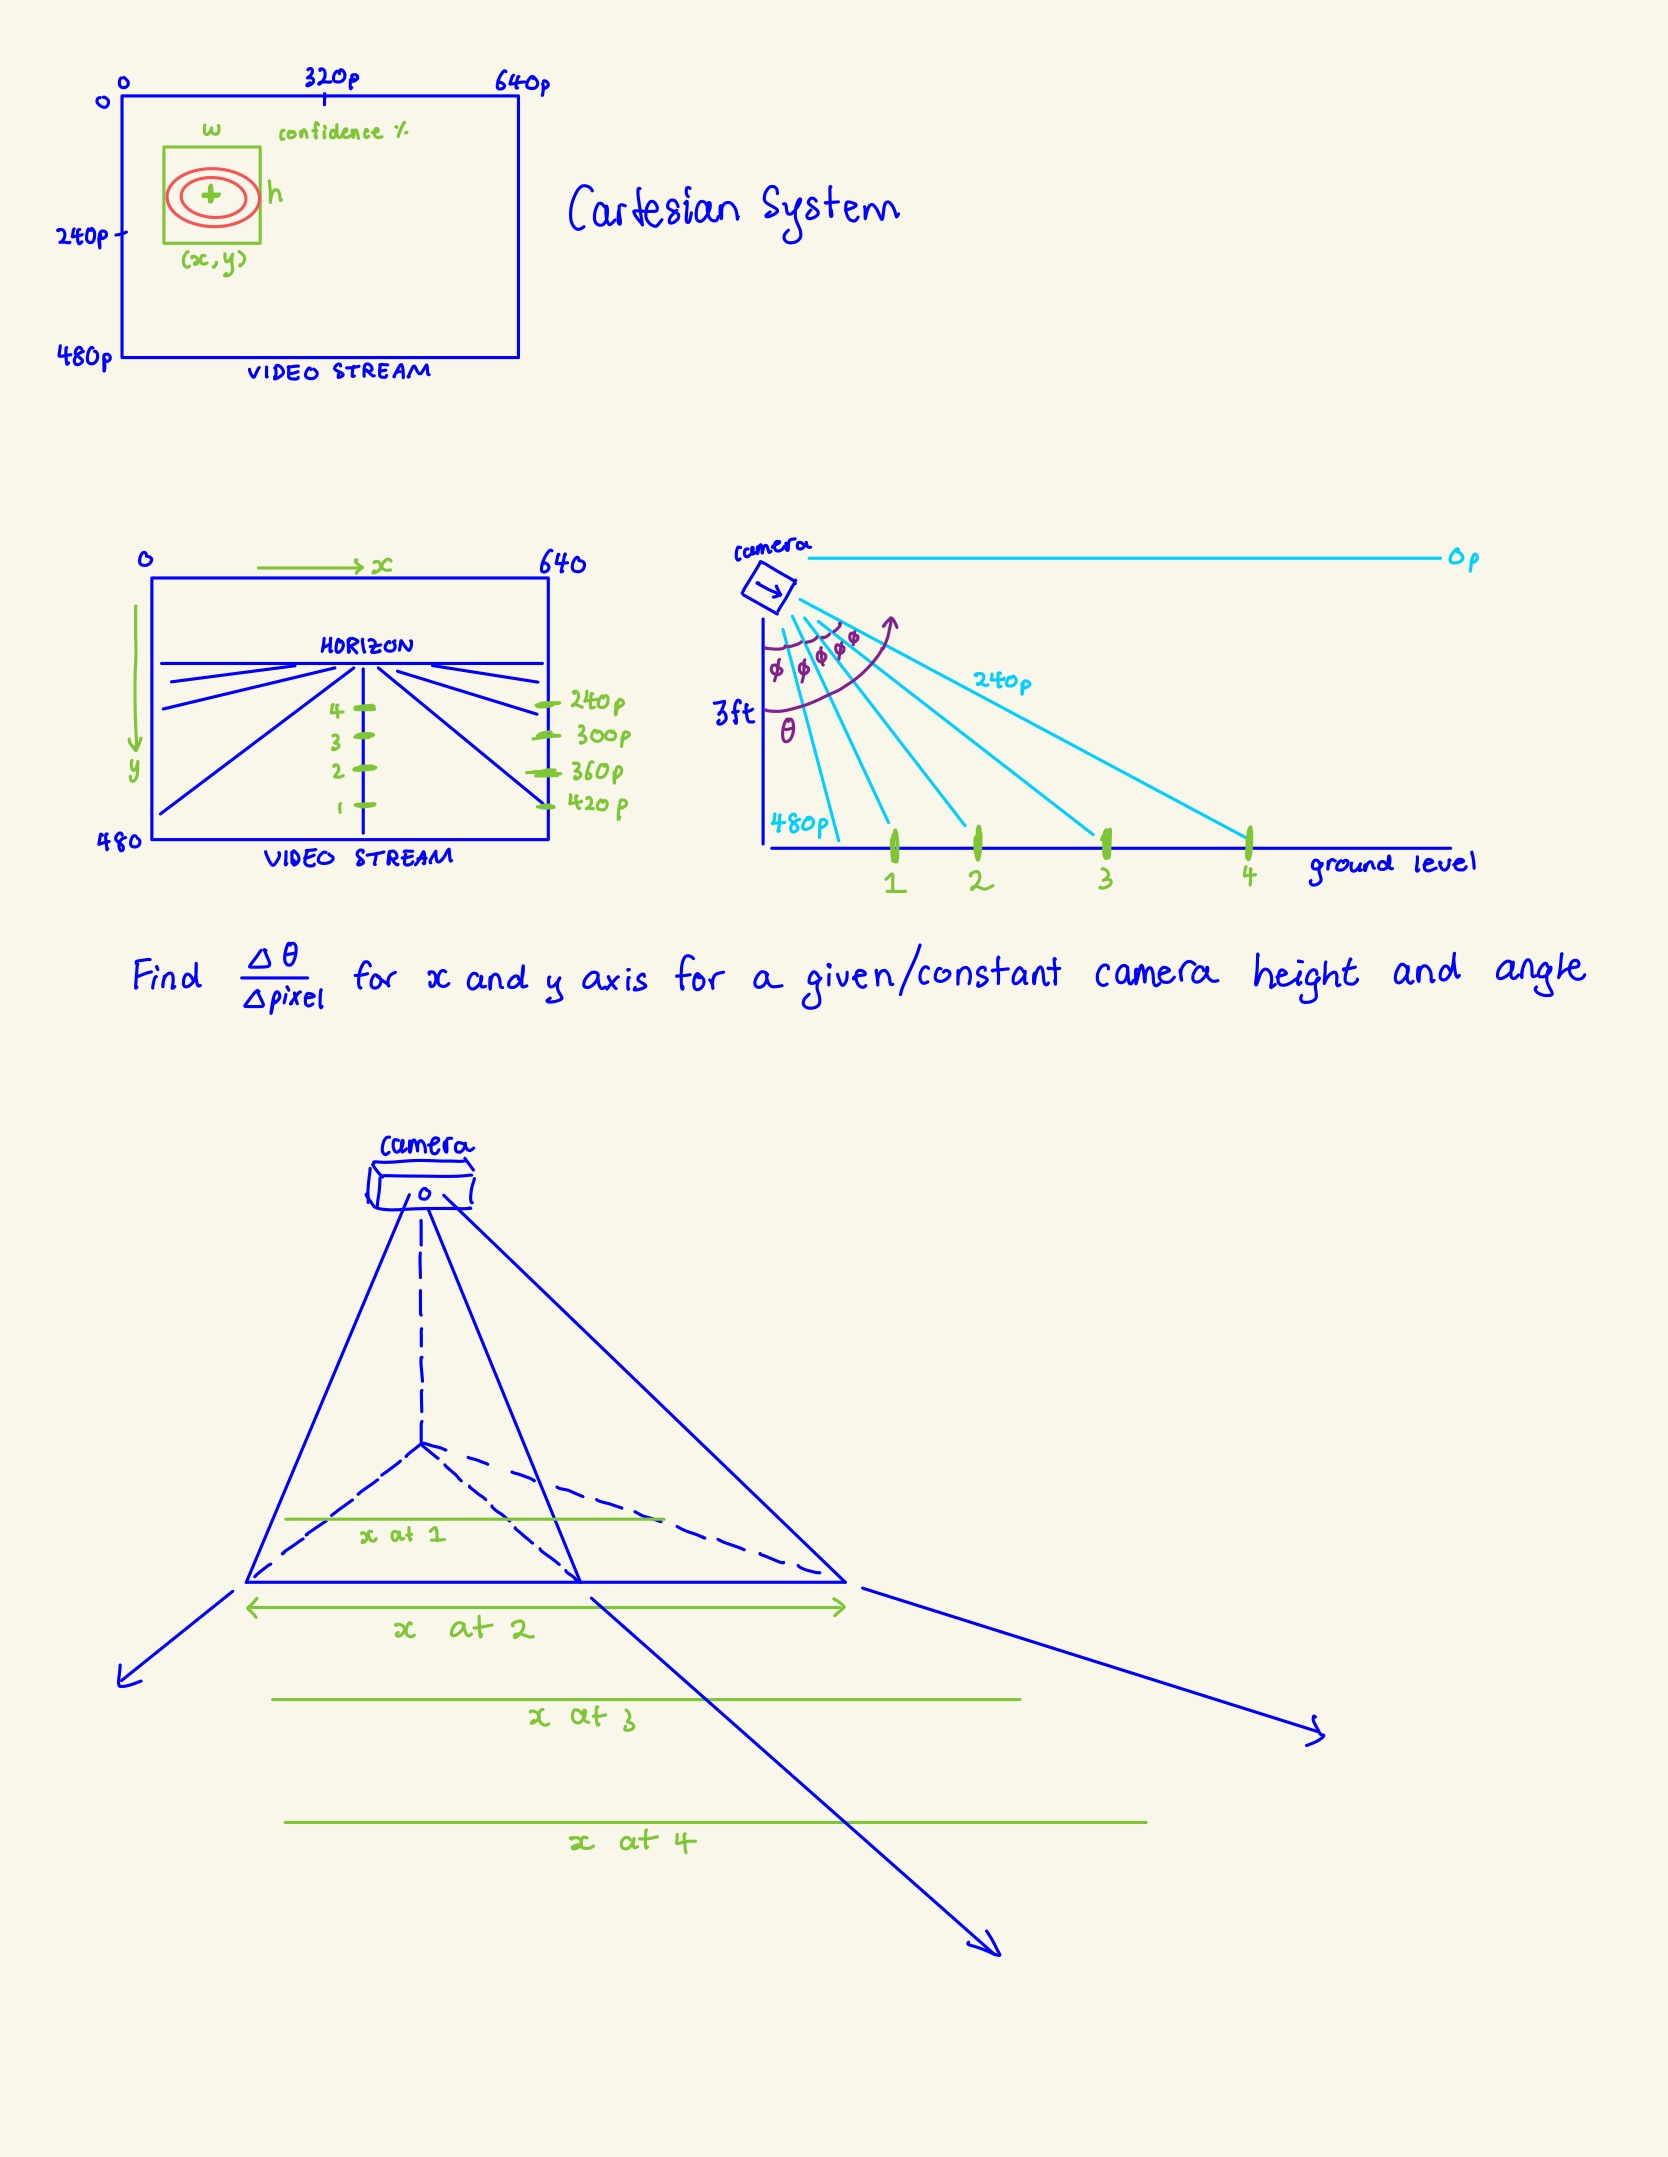 0 320p 640p
0
w confidence %
h
240p
(x,y)
480p
VIDEO STREAM
Cartesian System
0 x 640
HORIZON
y
4 240p
3 300p
2 360p
1 420p
480
VIDEO STREAM
camera
0p
ϕ ϕ ϕ ϕ ϕ
240p
3ft
θ
480p
1 2 3 4
ground level
Find Δθ/Δpixel for x and y axis for a given/constant camera height and angle
camera
x at 1
x at 2
x at 3
x at 4